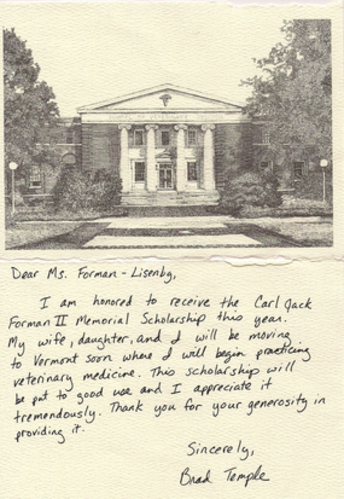 Dear Ms. Forman-Lisenby,
I am honored to receive the Carl Jack
Forman II Memorial Scholarship this year.
My wife, daughter, and I will be moving
to Vermont soon where I will begin practicing
veterinary medicine. This scholarship will
be put to good use and I appreciate it
tremendously. Thank you for your generosity in
providing it.
Sincerely,
Brad Temple